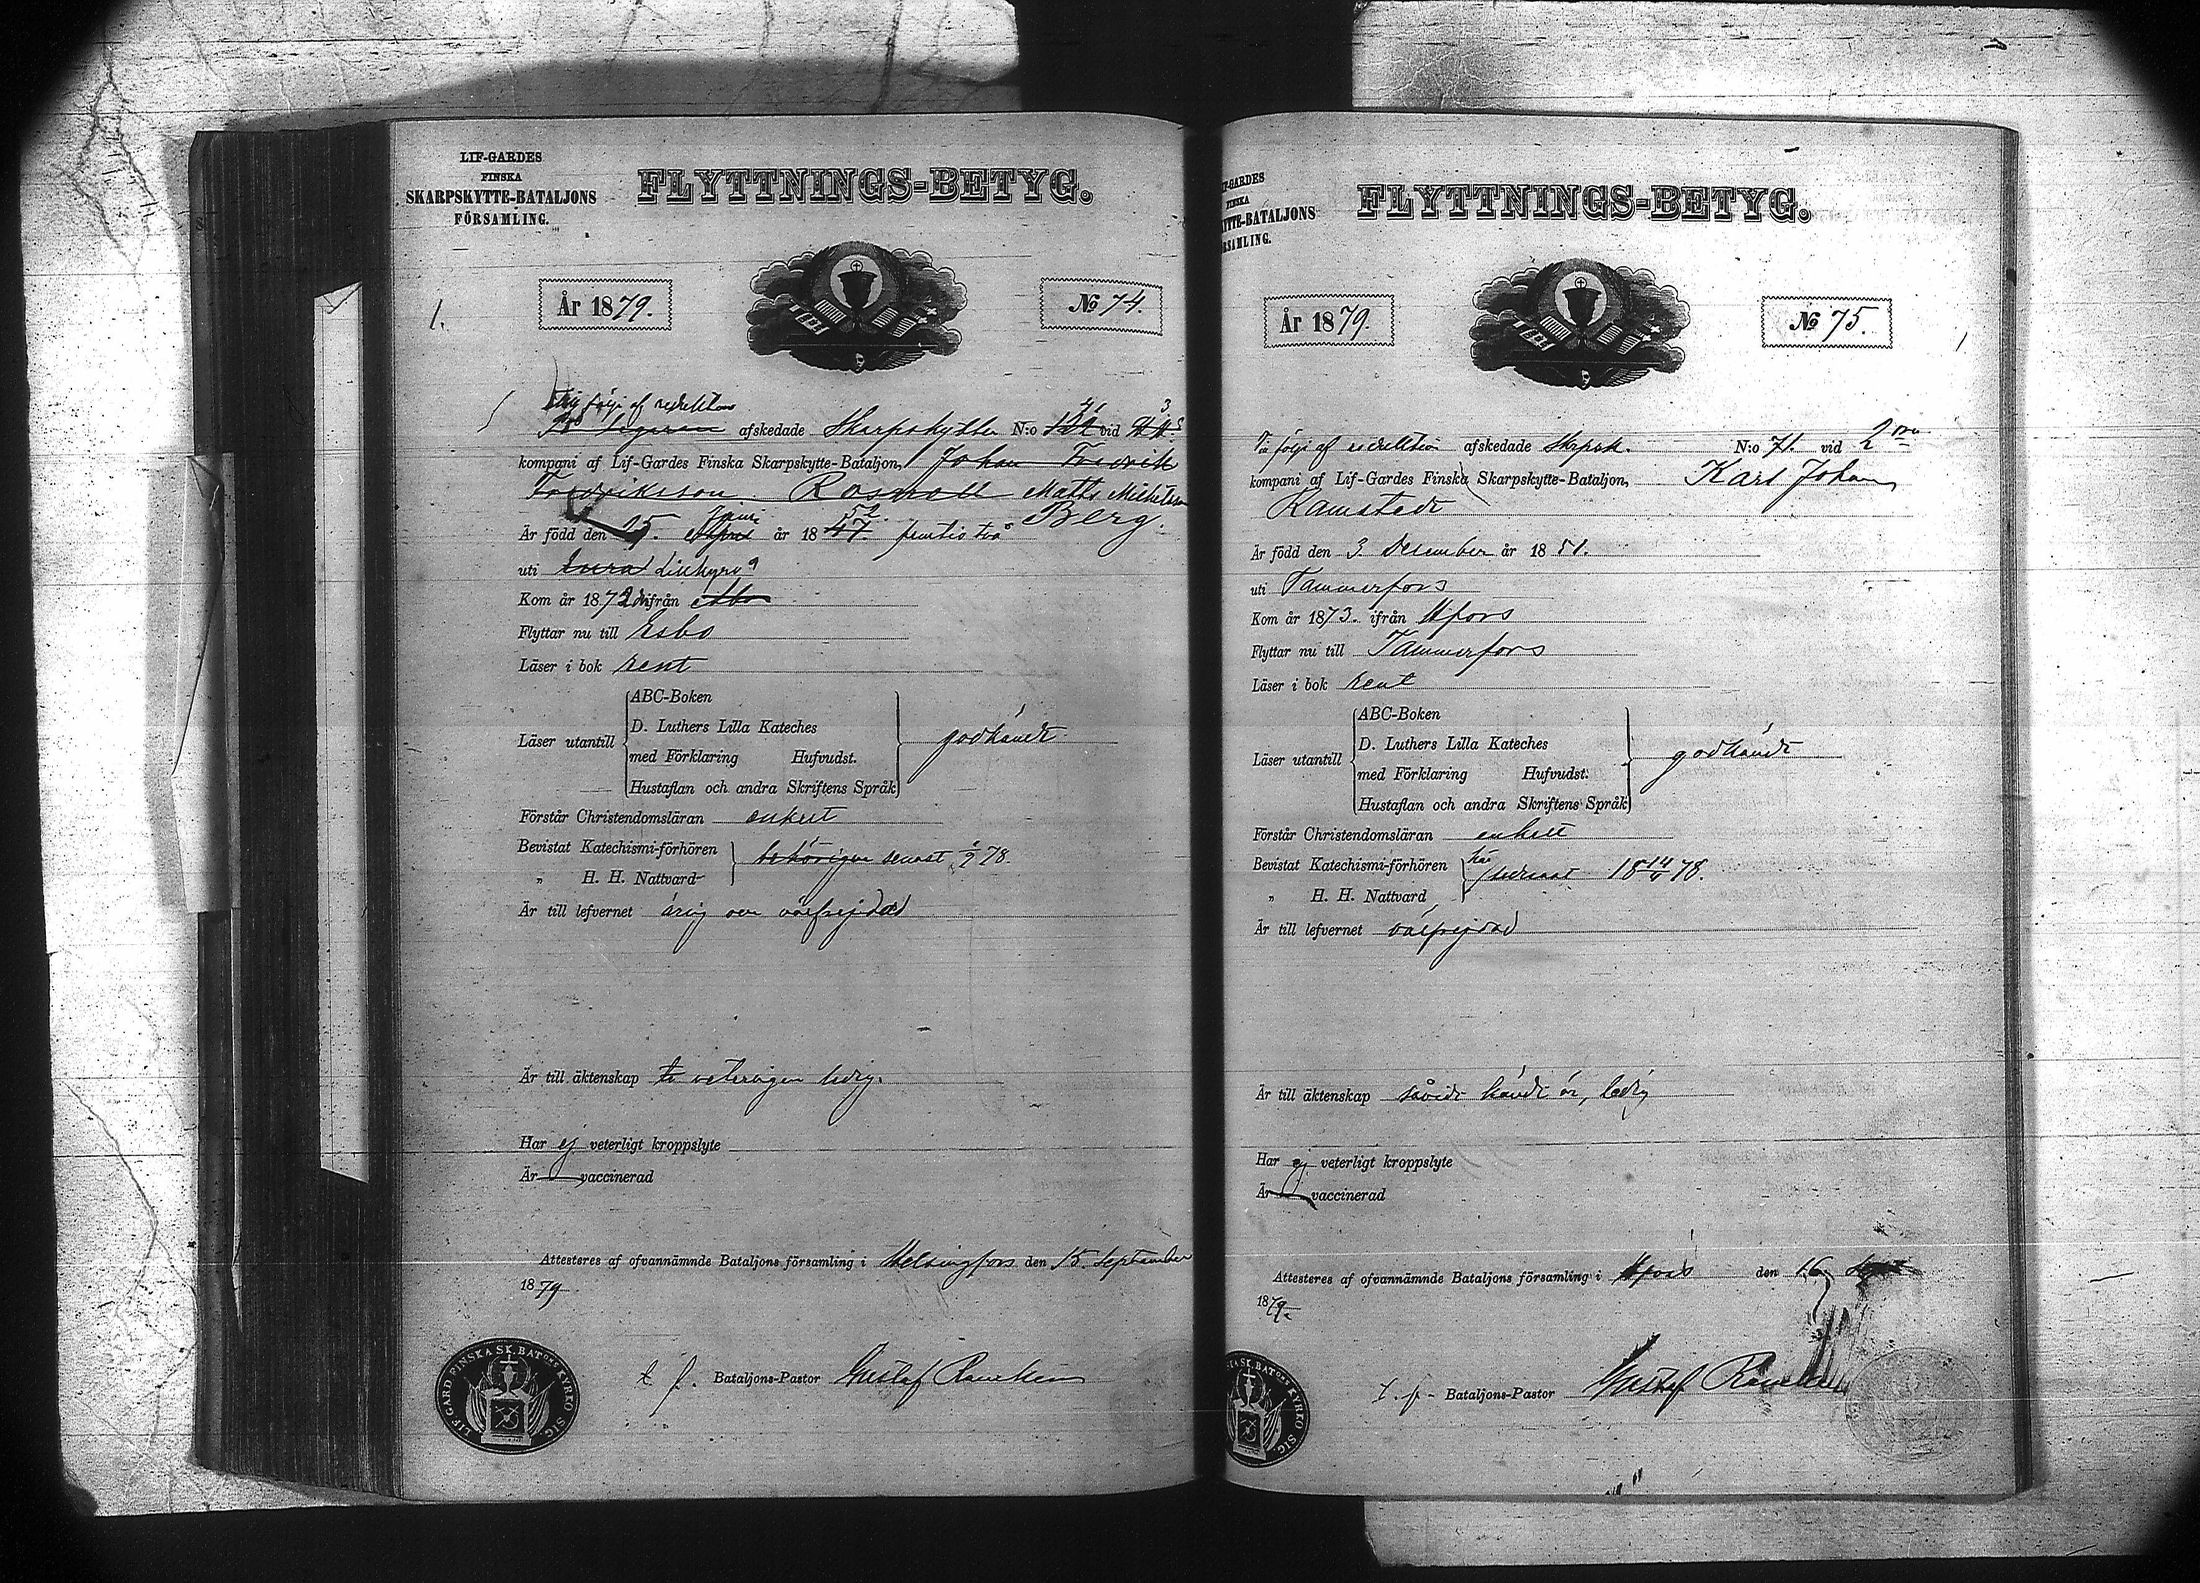 LIF-GARDES
FINSKA
SKARPSKYTTE-BATALJONS
FÖRSAMLING.
FLYTTNINGS-BETYG.
År 1879.
№ 74.
1.
följe af reduktion
afskedade Skarpskytten N:o vid
kompani af Lif-Gardes Finska Skarpskytte-Bataljon, Johan Fredrik
Fredriksson Rosnell Matts Mickelsson
Berg.
Är född den 25. år 1847 52. femtio två
uti
Kom år 1872 ifrån Åbo
Flyttar nu till Esbo
Läser i bok rent
Läser utantill
ABC-Boken
D. Luthers Lilla Kateches
med Förklaring Hufvudst.
Hustaflan och andra Skriftens Språk
godkändt
Förstår Christendomsläran enkelt
Bevistat Katechismi-förhören
„ H. H. Nattvard
behörigen senast 78.
Är till lefvernet ärlig och välfrejdad
Är till äktenskap veterligen ledig.
Har ej veterligt kroppslyte
Är vaccinerad
Attesteres af ofvannämnde Bataljons församling i Helsingfors den 15. September
1879.
t. f. Bataljons-Pastor Gustaf Rancken
LIF. GARD. FINSKA SK. BATONS KYRKO SIG.
F-GARDES
FINSKA
YTTE-BATALJONS
RSAMLING.
FLYTTNINGS-BETYG.
År 1879.
№ 75.
följe af reduktion afskedade Skrpsk. N:o 71. vid 2
kompani af Lif-Gardes Finska Skarpskytte-Bataljon, Karl Johan
Ramstedt
Är född den 3. December år 1851.
uti Tammerfors
Kom år 1873. ifrån Hfors
Flyttar nu till Tammerfors
Läser i bok rent
Läser utantill
ABC-Boken
D. Luthers Lilla Kateches
med Förklaring Hufvudst.
Hustaflan och andra Skriftens Språk
godkändt
Förstår Christendomsläran enkelt
Bevistat Katechismi-förhören
„ H. H. Nattvard
här senast 18 78.
Är till lefvernet välfrejdad
Är till äktenskap såvidt kändt är, ledig
Har ej veterligt kroppslyte
Är vaccinerad
Attesteres af ofvannämnde Bataljons församling i Hfors den 16 Sept
1879.
t. f. Bataljons-Pastor Gustaf Rancken
KA SK. BATONS KYRKO SIG.